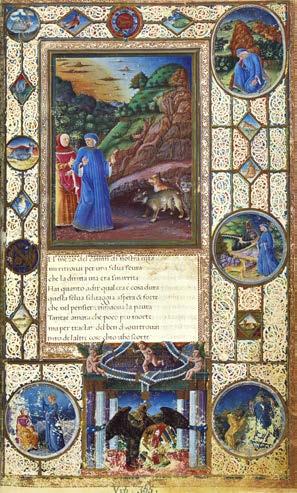 el mezo del camin di nostra uita
mi ritrouai per una selua scura
che la diritta uia era smarrita
Hai quanto adir qual era e cosa dura
questa selua seluaggia aspera e forte
che nel pensier rinoua la paura
Tantae amara che poco piu morte
ma per tractar del ben chio ui trouai
diro del altre cose chio uho scorte
Urb. 365.